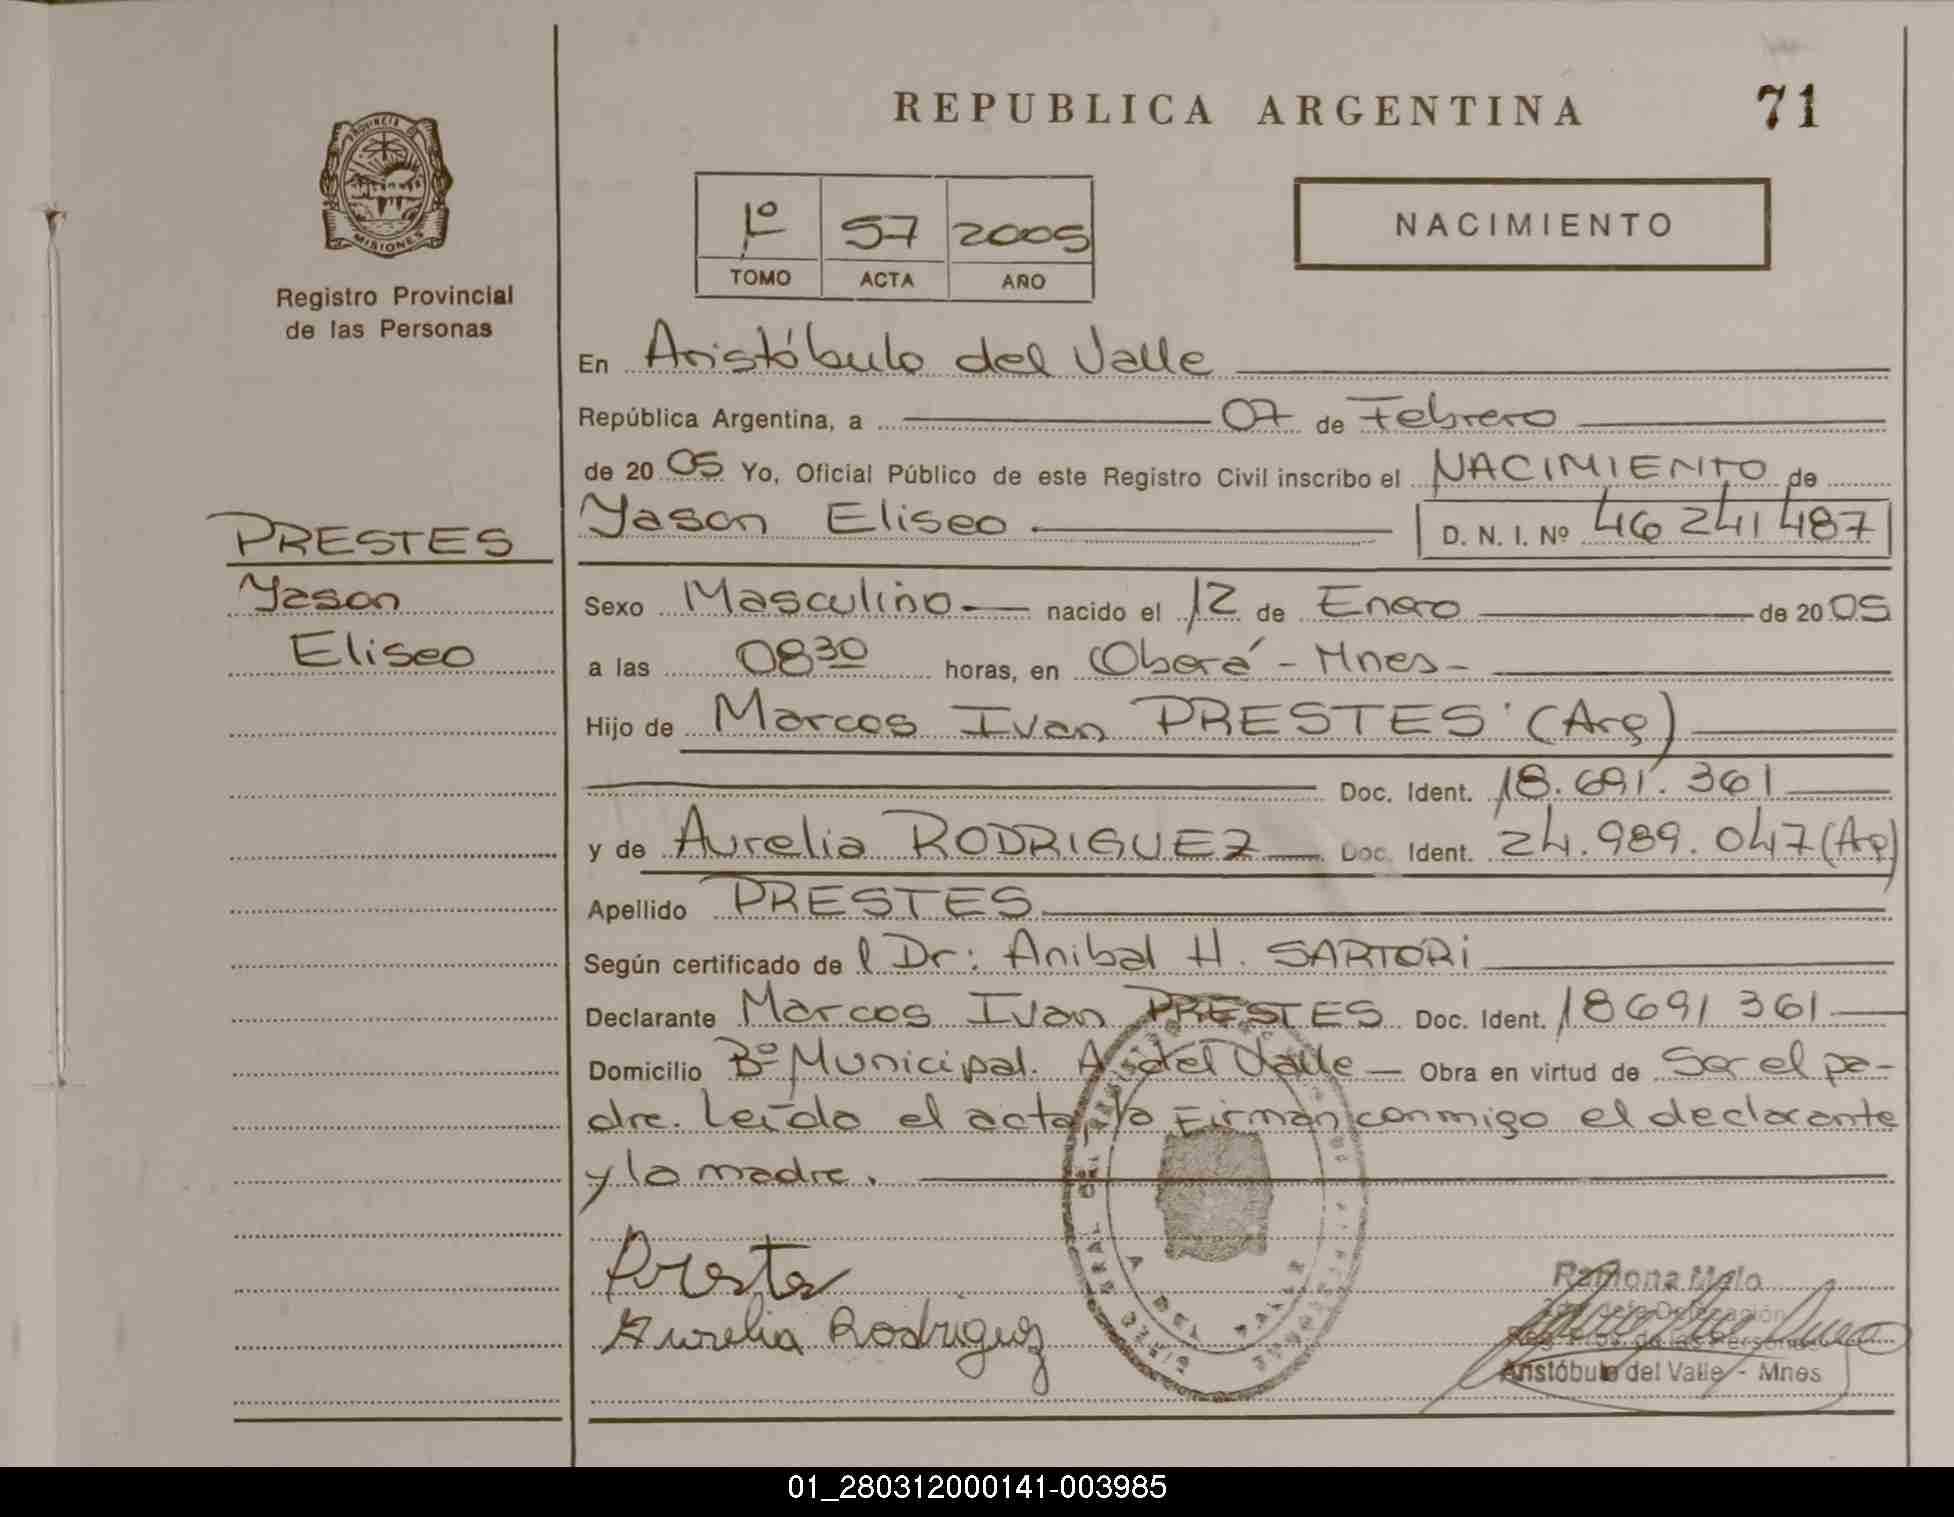 REPUBLICA ARGENTINA
71
PROVINCIA DE
MISIONES
Registro Provincial
de las Personas
1º 57 2005
TOMO ACTA AÑO
NACIMIENTO
En Aristóbulo del Valle
República Argentina, a 07 de Febrero
de 2005 Yo, Oficial Público de este Registro Civil inscribo el NACIMIENTO de
Yason Eliseo D. N. I. Nº 46 241 487
PRESTES
Yason
Eliseo
Sexo Masculino nacido el 12 de Enero de 2005
a las 08 30 horas, en Oberá - Mnes -
Hijo de Marcos Ivan PRESTES (Arg)
Doc. Ident. 18.691.361
y de Aurelia RODRIGUEZ Doc. Ident. 24.989.047 (Arg)
Apellido PRESTES
Según certificado de l Dr: Anibal H. SARTORI
Declarante Marcos Ivan PRESTES Doc. Ident. 18691 361
Domicilio Bº Municipal. A. del Valle Obra en virtud de Ser el pa-
dre. Leída el acta, la Firman conmigo el declarante
y la madre.
Prestes
Aurelia Rodriguez
A DEL VALLE
Ramona Melo
Delegación
Reg. Prov. de las Personas
Aristóbulo del Valle - Mnes
01_280312000141-003985